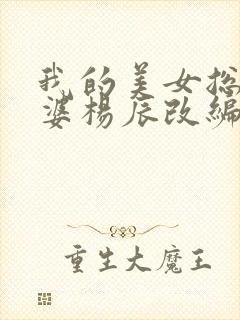 我的美女总
婆杨辰改编
重生大魔王